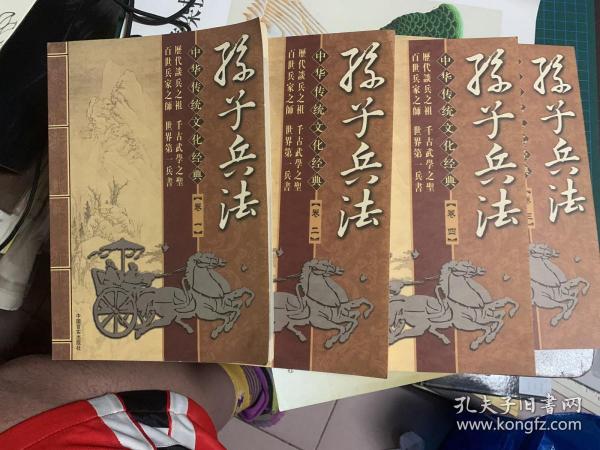 孫子兵法
中华传统文化经典
【卷一】
歷代談兵之祖 千古武學之聖
百世兵家之師 世界第一兵書
中国言实出版社
孫子兵法
中华传统文化经典
【卷二】
歷代談兵之祖 千古武學之聖
百世兵家之師 世界第一兵書
孫子兵法
中华传统文化经典
【卷四】
歷代談兵之祖 千古武學之聖
百世兵家之師 世界第一兵書
孫子兵法
经典
【卷三】
孔夫子旧书网
www.kongfz.com